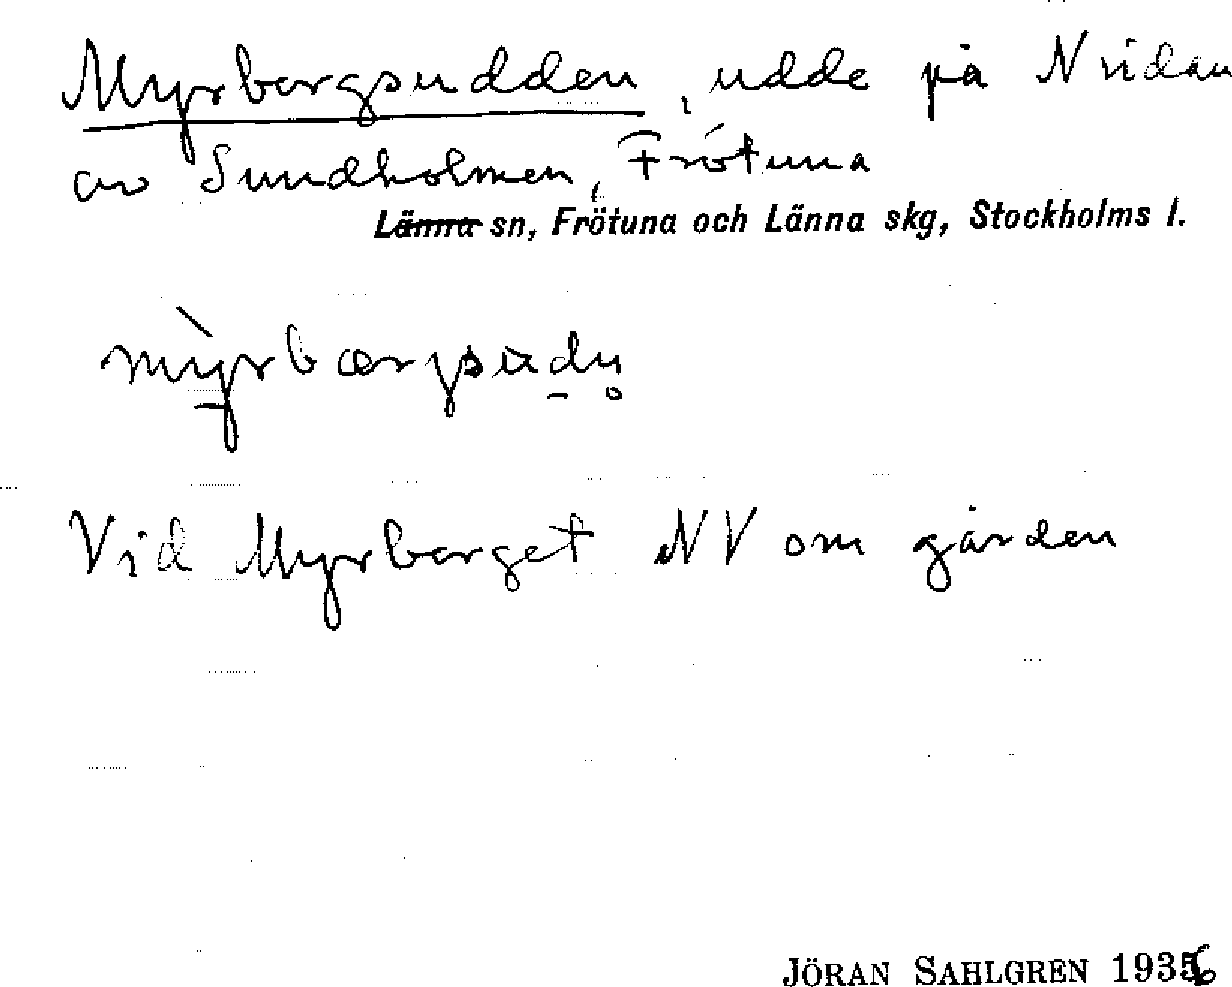 Myrbergsudden, udde på N sidan
av Sundholmen, Frötuna
Länna sn, Frötuna och Länna skg, Stockholms l.
mỳrbærgsudn̥
Vid Myrberget NV om gården
JÖRAN SAHLGREN 1936